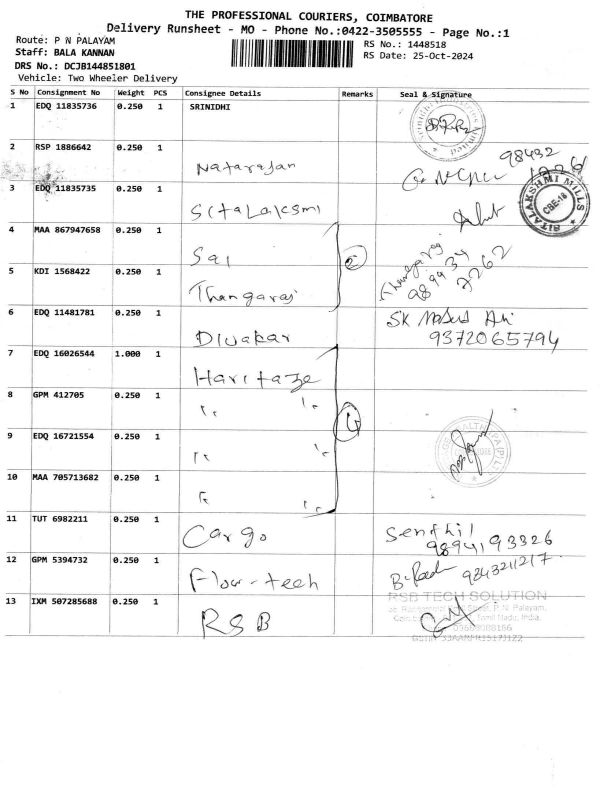 THE PROFESSIONAL COURIERS, COIMBATORE
Delivery Runsheet - MO - Phone No.:0422-3505555 - Page No.:1
Route: P N PALAYAM
RS No.: 1448518
Staff: BALA KANNAN
RS Date: 25-Oct-2024
DRS No.: DCJB144851801
Vehicle: Two Wheeler Delivery
S No Consignment No Weight PCS Consignee Details Remarks Seal & Signature
1 EDQ 11835736 0.250 1 SRINIDHI
2 RSP 1886642 0.250 1 Natarajan 98432
3 EDQ 11835735 0.250 1 SitaLaksmi
SITALAKSHMI MILLS
CBE-18
4 MAA 867947658 0.250 1 Sai 2
5 KDI 1568422 0.250 1 Thangaraj Thangaraj 989434 7262
6 EDQ 11481781 0.250 1 Divakar SK Ali
9372065794
7 EDQ 16026544 1.000 1 Haritaze
8 GPM 412705 0.250 1 " "
9 EDQ 16721554 0.250 1 " "
10 MAA 705713682 0.250 1 " "
11 TUT 6982211 0.250 1 Cargo Senthil
9894193326
12 GPM 5394732 0.250 1 Flow-tech 9843211217
13 IXM 507285688 0.250 1 RSB
RSB TECH SOLUTION
P. N. Palayam,
Tamil Nadu, India.